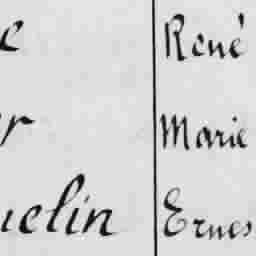 e René
r Marie
uelin Ernes